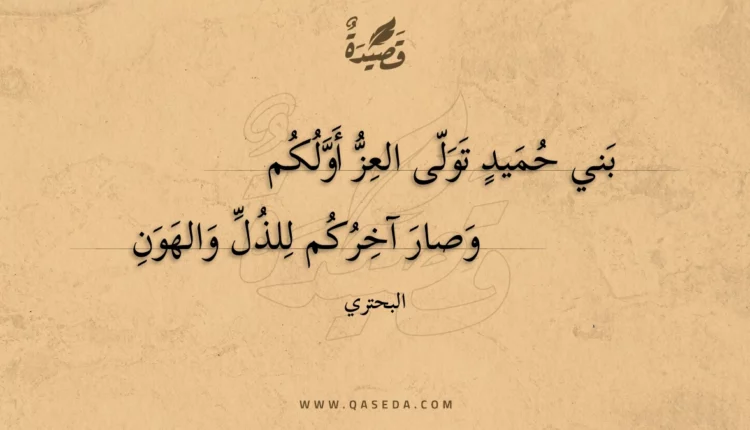 قَصِيدَةٌ
بَني حُمَيدٍ تَوَلّى العِزُّ أَوَّلُكُم
وَصارَ آخِرُكُم لِلذُلِّ وَالهَوَنِ
البحتري
WWW.QASEDA.COM